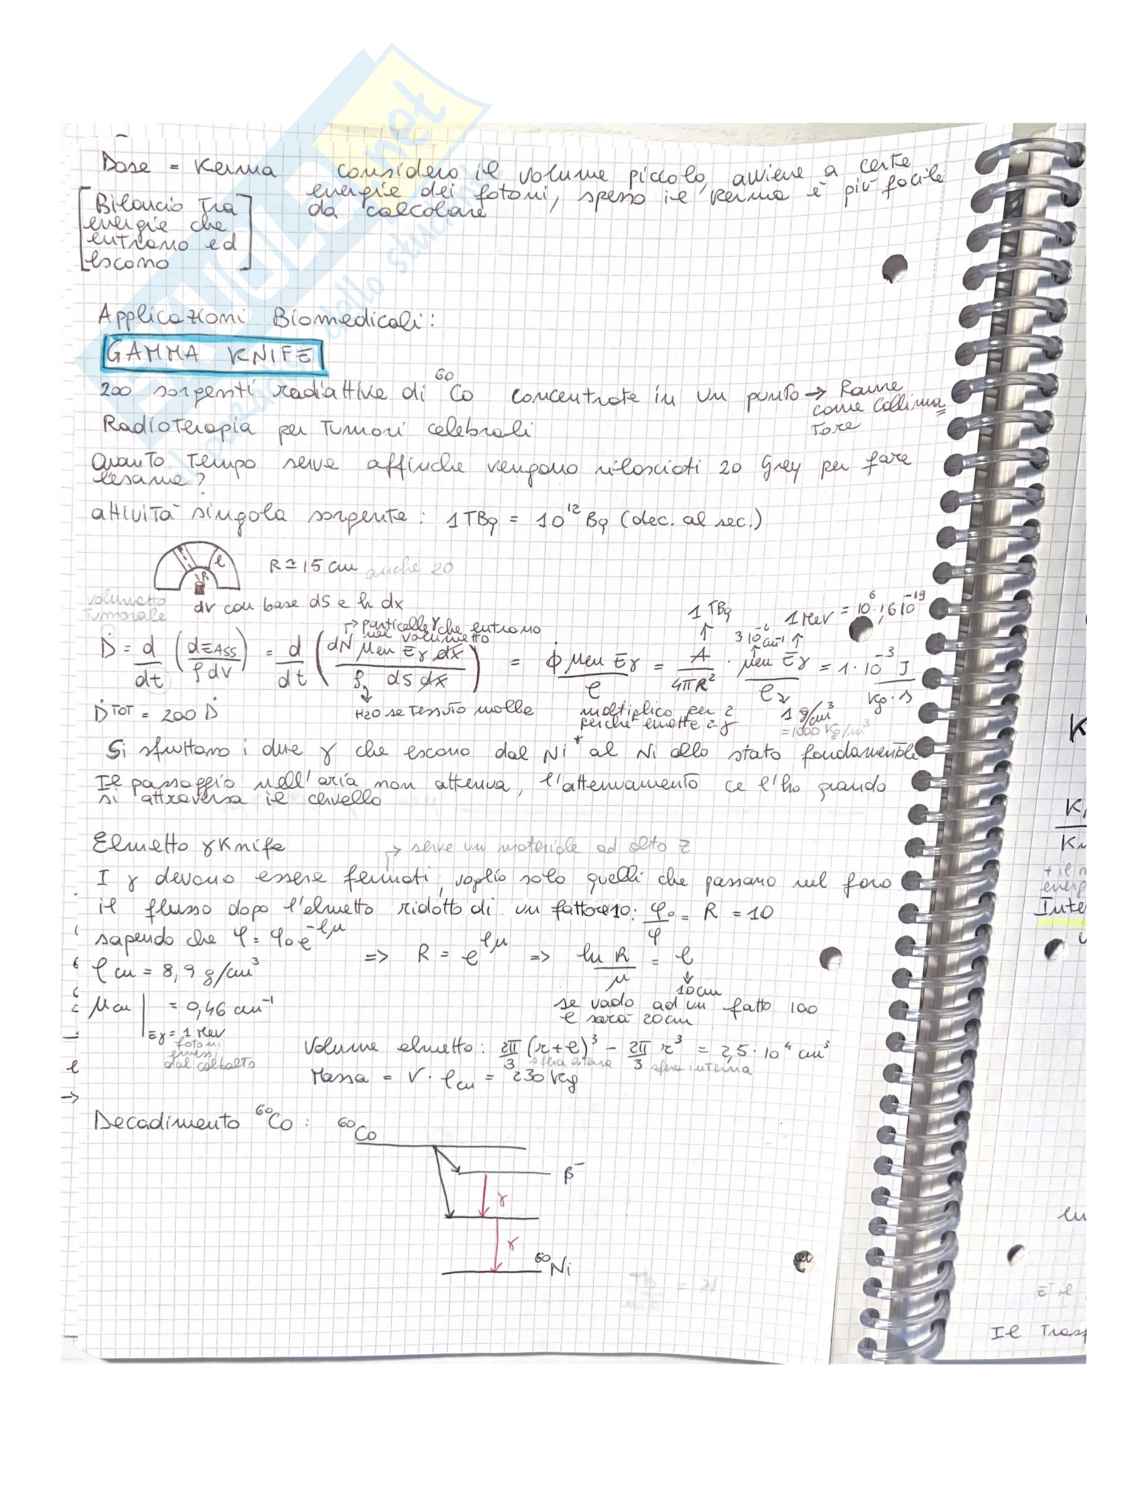 Dose = Kerma considero il volume piccolo, avviene a certe
energie dei fotoni, spesso il Kerma è più facile
da calcolare
[Bilancio tra
energie che
entrano ed
escono]
Applicazioni Biomedicali:
GAMMA KNIFE
200 sorgenti radiattive di ⁶⁰Co concentrate in un punto → Rame
come collima=
tore
Radioterapia per tumori celebrali
Quanto tempo serve affinche vengono rilasciati 20 Grey per fare
l'esame?
attività singola sorgente: 1 TBq = 10¹² Bq (dec. al sec.)
l
R
R ≃ 15 cm anche 20
volumetto
tumorale
dV con base dS e h dx
↱ particelle γ che entrano
nel volumetto
1 TBq
1 MeV = 10⁶ · 1,6 10⁻¹⁹
3 10⁻² cm⁻¹
Ḋ = d/dt (dE_ASS / ρ dV) = d/dt (dN μen Eγ dx / ρ dS dx) = ϕ μen Eγ / ρ = A / 4πR² · μen Eγ / ρ 2 = 1 · 10⁻³ J / kg · s
Ḋ TOT = 200 Ḋ
H2O se tessuto molle
moltiplico per 2
perché emette 2 γ
1 g/cm³
= 1000 kg/m³
Si sfruttano i due γ che escono dal Ni* al Ni allo stato fondamentale
Il passaggio nell'aria non attenua, l'attenuamento ce l'ho quando
si attraversa il cervello
Elmetto γ Knife
↱ serve un materiale ad alto Z
I γ devono essere fermati, voglio solo quelli che passano nel foro
il flusso dopo l'elmetto ridotto di un fattore 10: φ₀/φ = R = 10
sapendo che φ = φ₀ e^-lμ => R = e^lμ => ln R / μ = l
ρcu = 8,9 g/cm³
10 cm
μcu | = 0,46 cm⁻¹
Eγ = 1 MeV
fotoni
emessi
dal cobalto
se vado ad un fatto 100
l sarà 20 cm
Volume elmetto: 2π/3 (r+l)³ - 2π/3 r³ = 2,5 · 10⁴ cm³
sfera esterna sfera interna
Massa = V · ρcu = 230 kg
Decadimento ⁶⁰Co: ⁶⁰Co
β⁻
γ
γ
⁶⁰Ni
Il Trasp